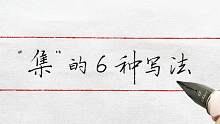 “集”的6种写法